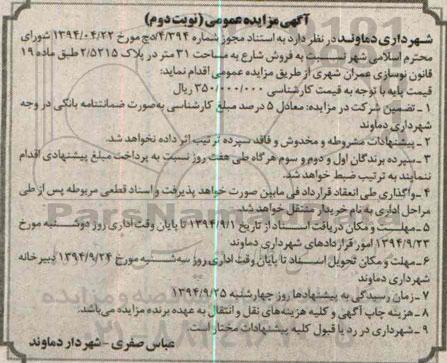 آگهی مزایده عمومی (نوبت دوم)
شهرداری دماوند در نظر دارد به استناد مجوز شماره ۴/۳۹۴/دچ مورخ ۱۳۹۴/۰۴/۲۲ شورای
محترم اسلامی شهر نسبت به فروش شارع به مساحت ۳۱ متر در پلاک ۲/۵۳۱۵ طبق ماده ۱۹
قانون نوسازی عمران شهری از طریق مزایده عمومی اقدام نماید:
قیمت پایه با توجه به قیمت کارشناسی ۳۵۰/۰۰۰/۰۰۰ ریال
۱- تضمین شرکت در مزایده: معادل ۵ درصد مبلغ کارشناسی به‌صورت ضمانتنامه بانکی در وجه
شهرداری دماوند
۲- پیشنهادات مشروطه و مخدوش و فاقد سپرده ترتیب اثر داده نخواهد شد.
۳- سپرده برندگان اول و دوم و سوم هرگاه طی هفت روز نسبت به پرداخت مبلغ پیشنهادی اقدام
ننمایند به ترتیب ضبط خواهد شد.
۴- واگذاری طی انعقاد قرارداد فی مابین صورت خواهد پذیرفت و اسناد قطعی مربوطه پس از طی
مراحل اداری به نام خریدار منتقل خواهد شد.
۵- مهلت و مکان دریافت اسناد از تاریخ ۱۳۹۴/۹/۱ تا پایان وقت اداری روز دوشنبه مورخ
۱۳۹۴/۹/۲۳ امور قراردادهای شهرداری دماوند
۶- مهلت و مکان تحویل اسناد تا پایان وقت اداری روز سه‌شنبه مورخ ۱۳۹۴/۹/۲۴ دبیرخانه
شهرداری دماوند
۷- زمان رسیدگی به پیشنهادها روز چهارشنبه ۱۳۹۴/۹/۲۵
۸- هزینه چاپ آگهی و کلیه هزینه‌های نقل و انتقال به عهده برنده مزایده می‌باشد.
۹- شهرداری در رد یا قبول کلیه پیشنهادات مختار است.
عباس صفری - شهردار دماوند